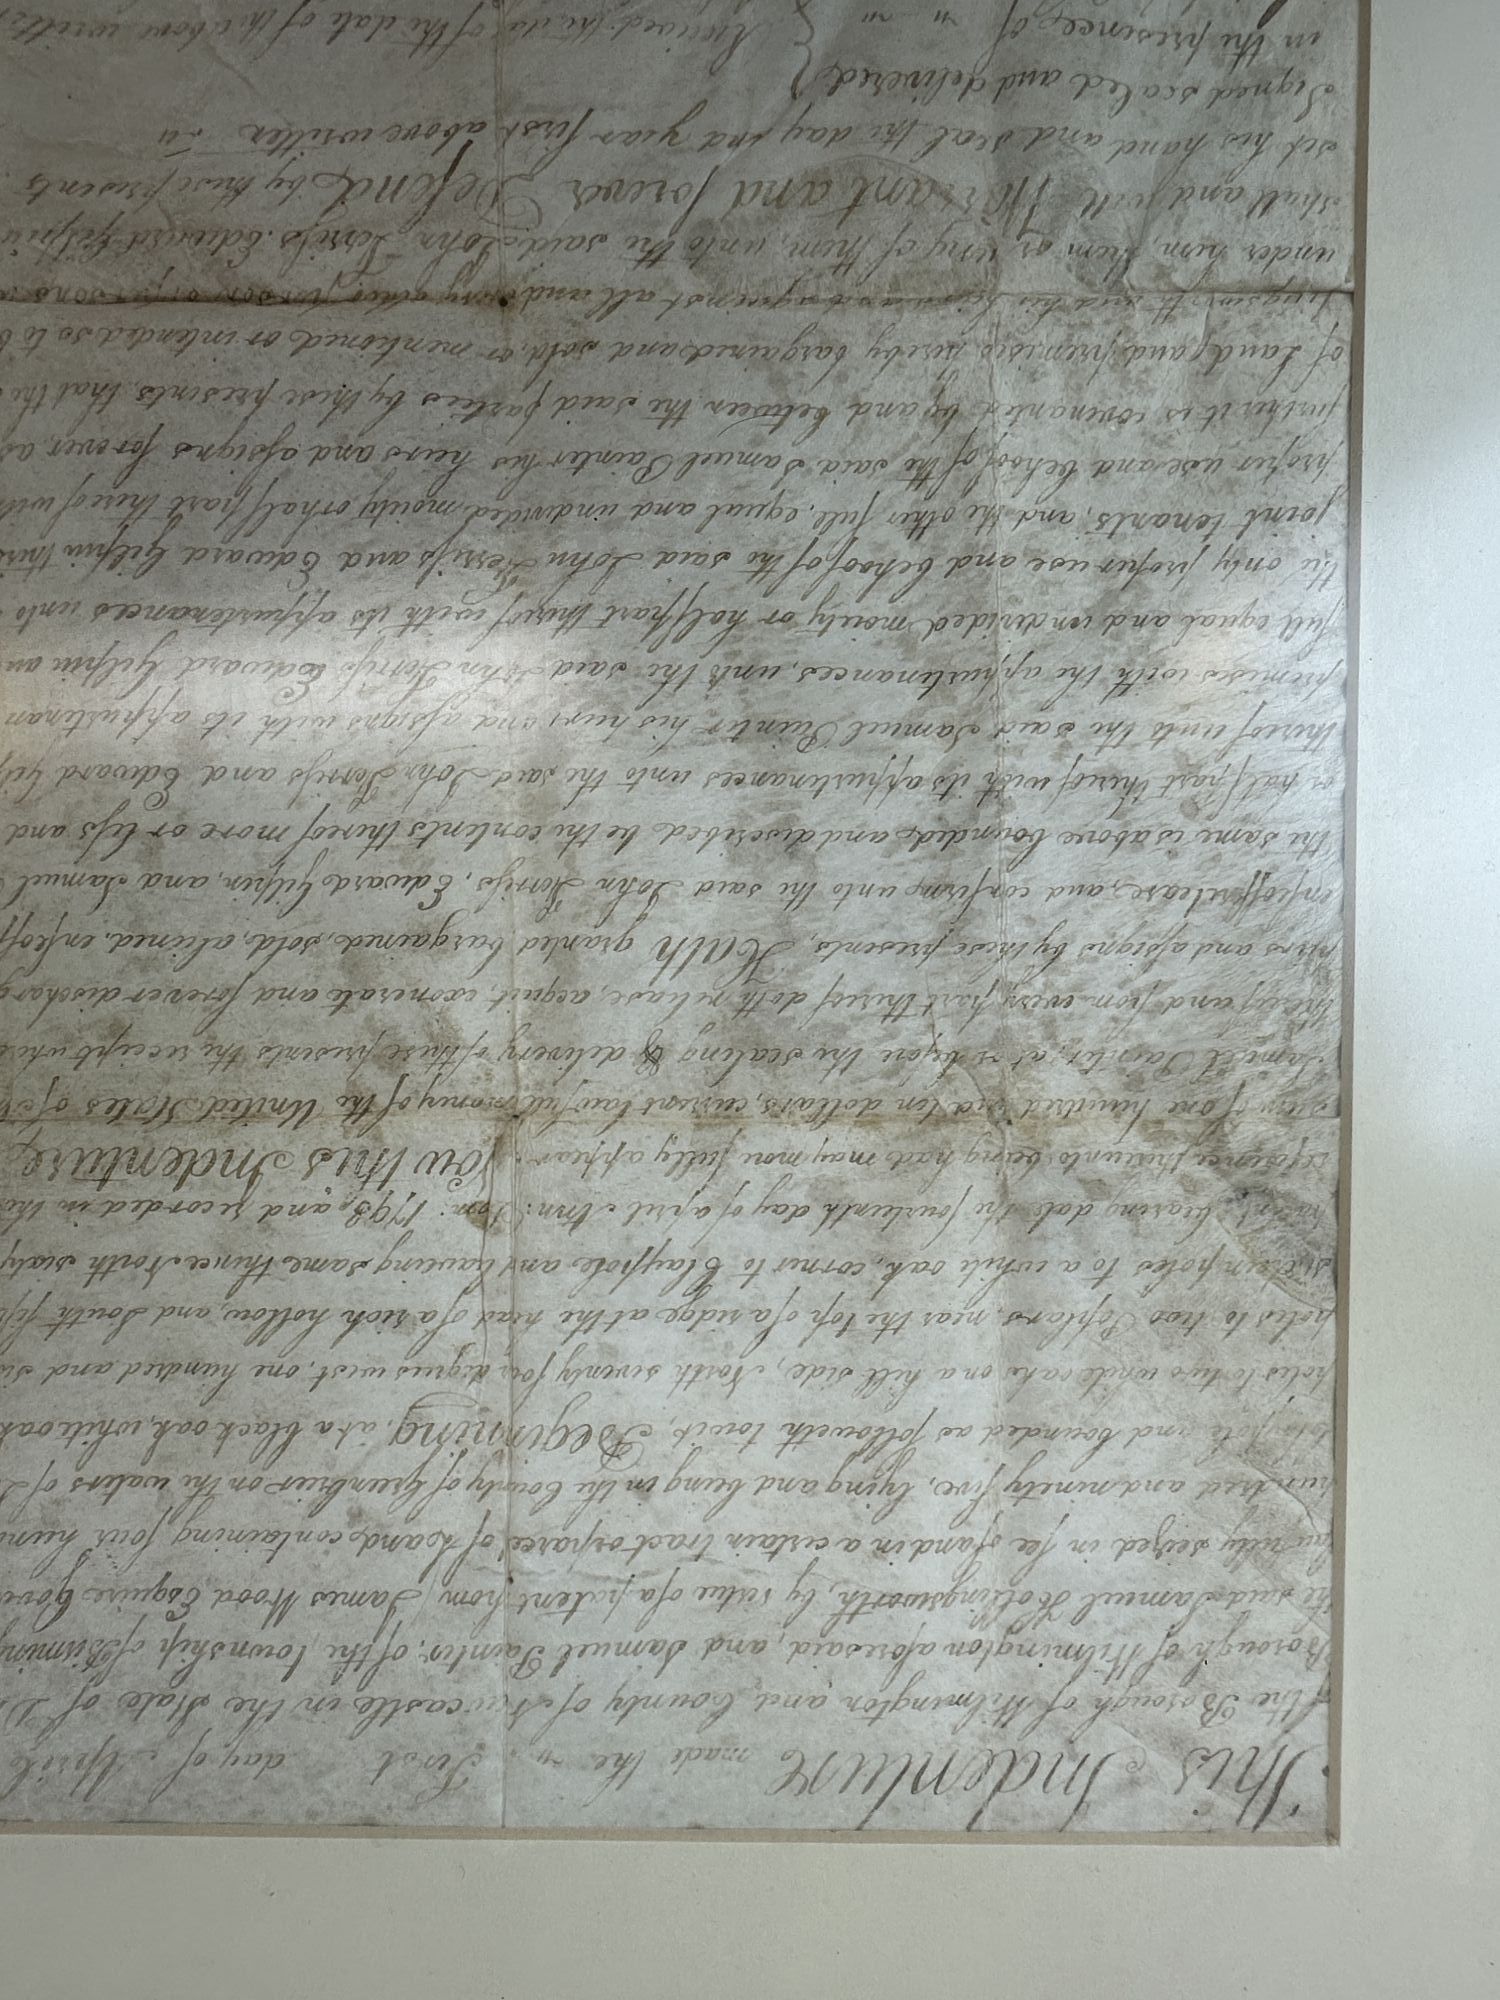 This Indenture made the First day of April
of the Borough of Wilmington and County of Newcastle in the State of
Borough of Wilmington aforesaid, and Samuel Painter, of the Township of Birming
the said Samuel Hollingsworth, by virtue of a patent from James Wood Esquire Gove
seized in fee of and in a certain tract or parcel of Land, containing four hun
hundred and ninety five, lying and being in the County of Greenbrier on the waters of
and bounded as followeth towit, Beginning, at a black oak, white oak
poles to two white oaks on a hill side, North seventy four degrees west, one hundred and si
poles to two Poplars, near the top of a ridge at the head of a rich hollow, and South fif
sixteen poles to a white oak, corner to Claypole and leaving same thence North sixty
patent, bearing date the fourteenth day of april Ann: Dom: 1793, and recorded in the
reference thereunto being had may more fully appear. Now this Indenture
sum of one hundred and ten dollars, current lawful money of the United States of
Samuel Painter, at or before the sealing & delivery of these presents the receipt where
thereof and from every part thereof doth release, acquit, exonerate and forever discharg
heirs and assigns by these presents, Hath granted bargained, sold, aliened, enfeoff
enfeoff release, and confirm, unto the said John Ferriss, Edward Gilpin, and Samuel
the same is above bounded and described be the contents thereof more or less and
or half part thereof with its appurtenances unto the said John Ferriss and Edward Gil
thereof unto the said Samuel Painter his heirs and assigns with its appurtenan
premises with the appurtenances, unto the said John Ferriss Edward Gilpin an
full equal and undivided moiety or half part thereof with its appurtenances unto
the only proper use and behoof of the said John Ferriss and Edward Gilpin thei
joint tenants, and the other full, equal and undivided moiety or half part thereof with
proper use and behoof of the said Samuel Painter his heirs and assigns forever as
further it is covenanted by and between the said parties by these presents, that the
of Land and premises hereby bargained and sold, or mentioned or intended so to b
lingsworth and his heirs and against all and every other person or persons
under him, them or any of them, unto the said John Ferriss Edward Gilpin
shall and will Warrant and forever Defend by these presents
set his hand and seal the day and year first above written
Signed sealed and delivered
in the presence of Received the day of the date of the above writte